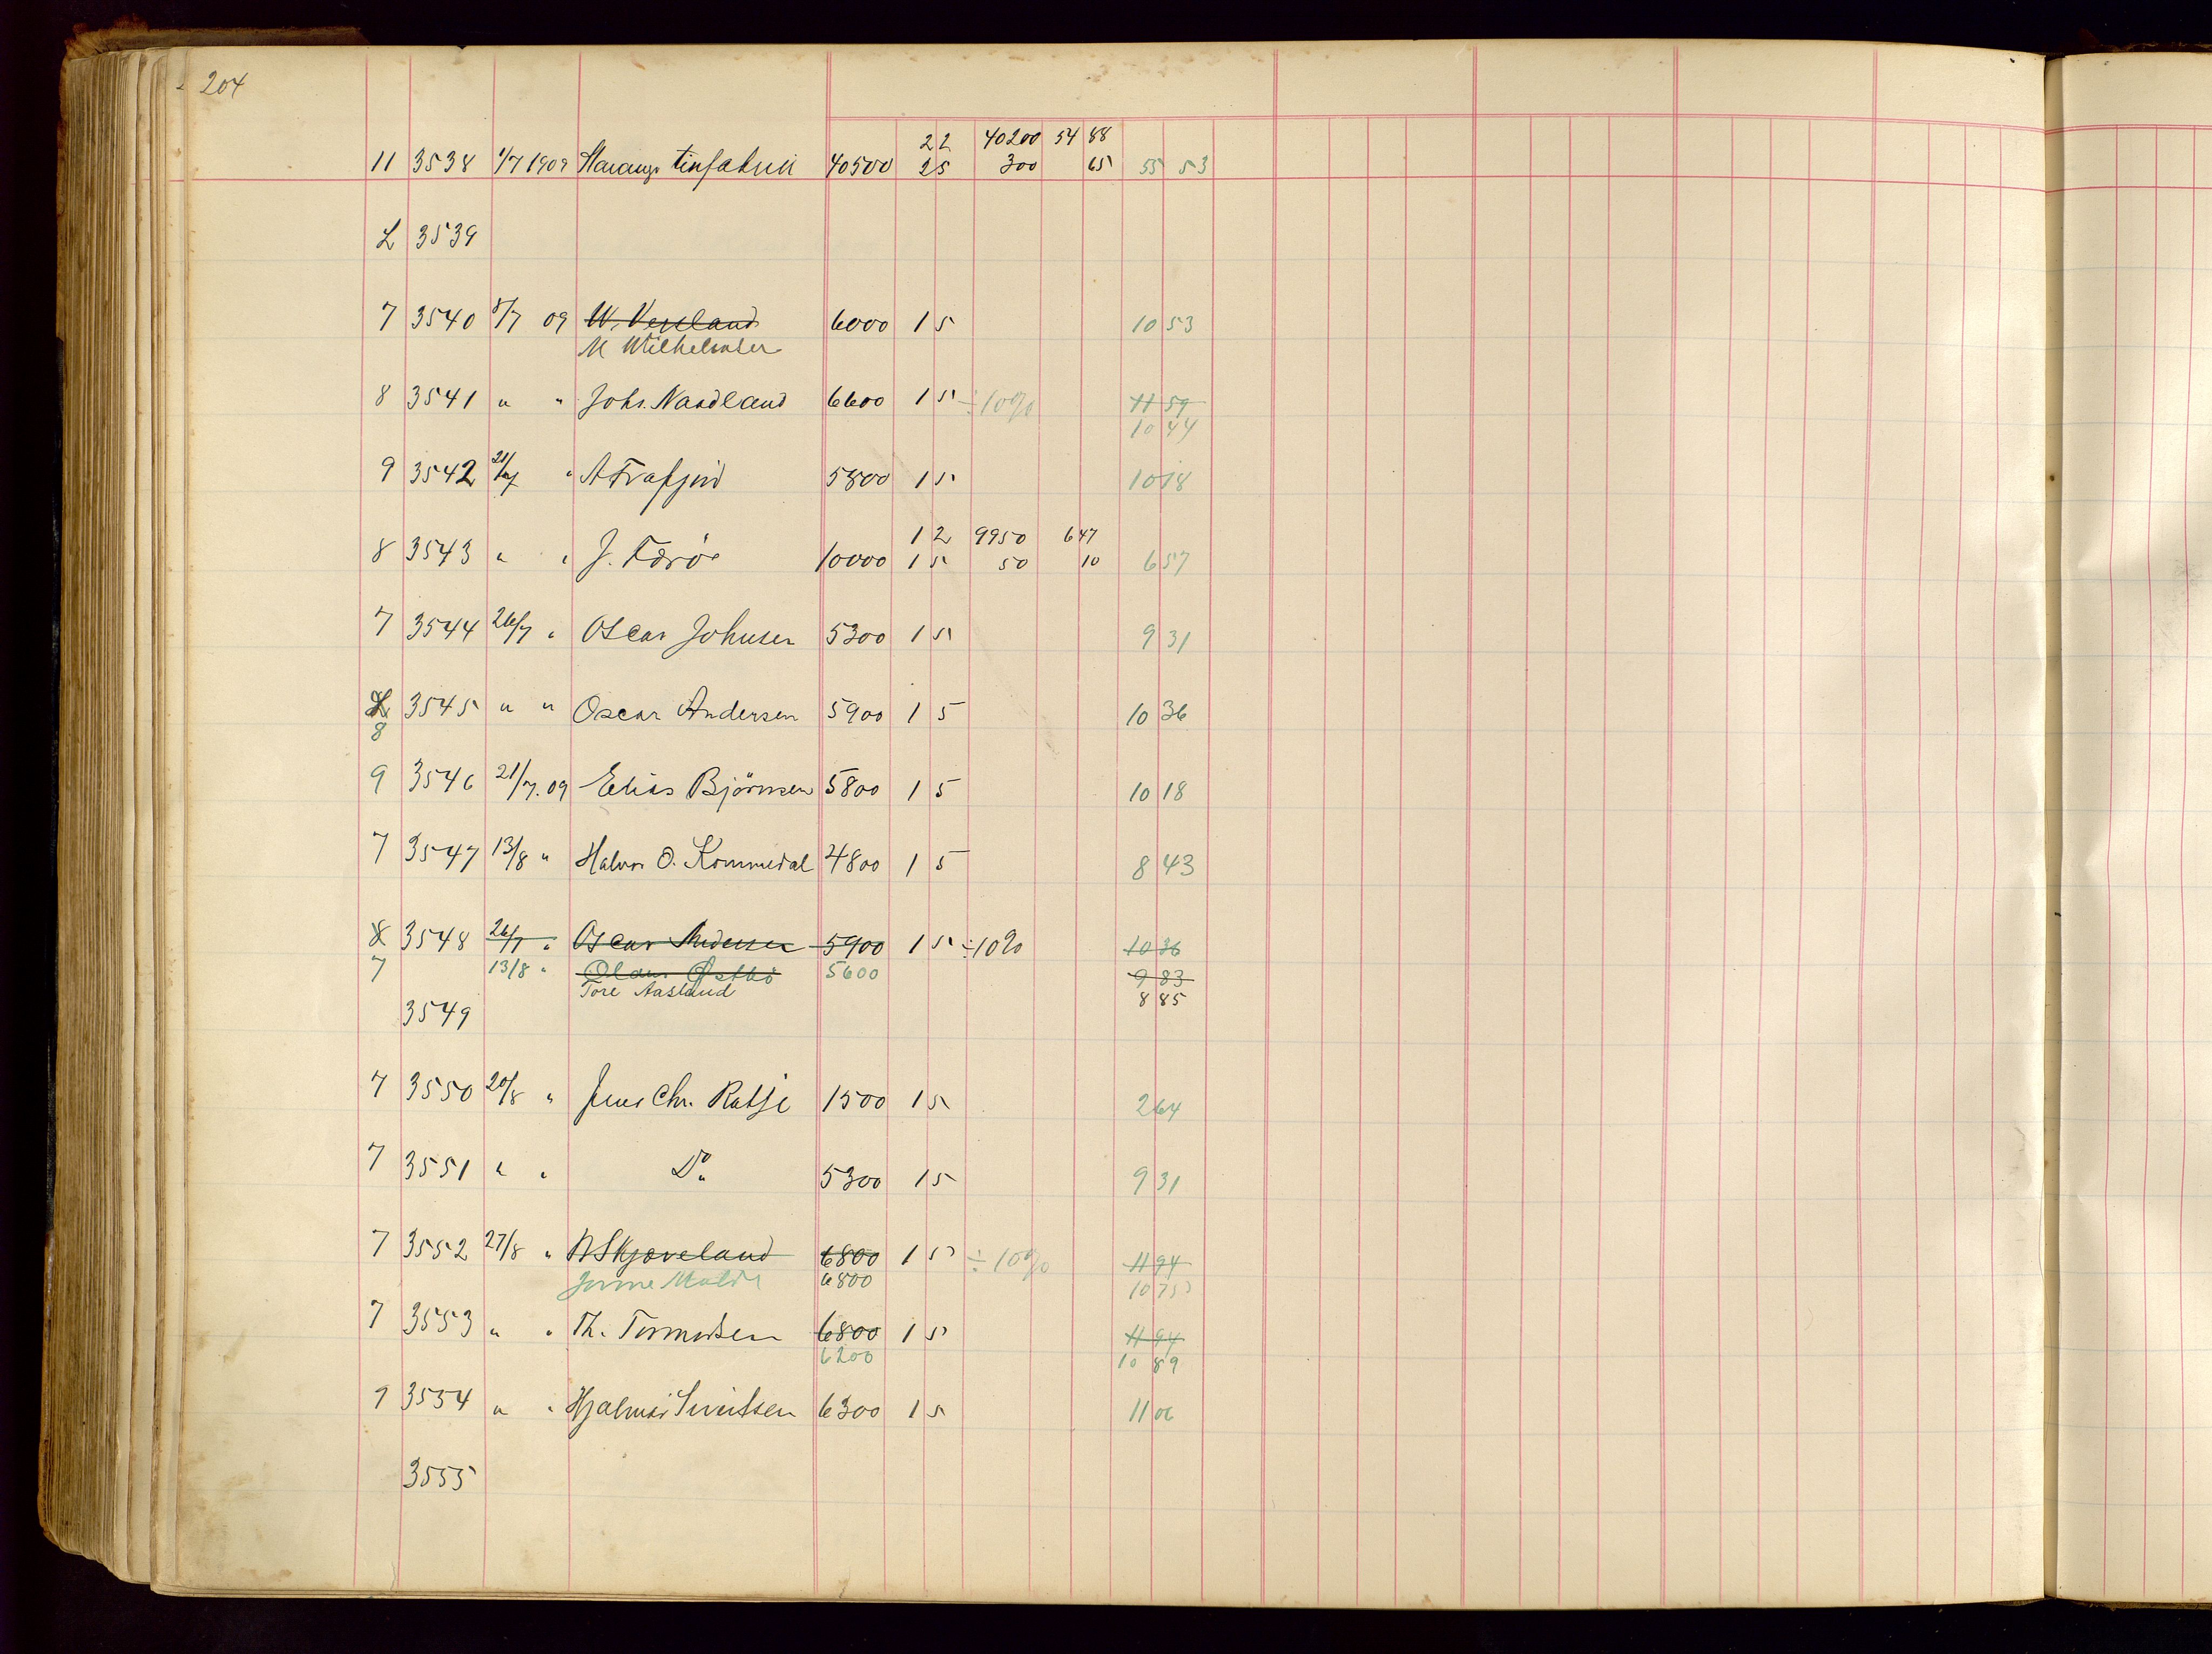 204
22 40200 54 88
11 3538 1/7 1909 tinfabrik 40500 25 300 65 55 53
L 3539
7 3540 8/7 09 W. 6000 1 5 10 53
M Wilhelmsen
8 3541 " " Johs. Naadland 6600 1 5 ÷10% 11 59
10 44
9 3542 21/7 " A Frafjord 5800 1 5 10 18
1 2 9950 6 47
8 3543 " " J. Færöe 10000 1 5 50 10 6 57
7 3544 26/7 " Oscar Johnsen 5300 1 5 9 31
L 3545 " " Oscar Andersen 5900 1 5 10 36
8
9 3546 21/7. 09 Elias Björnsen 5800 1 5 10 18
7 3547 13/8 " Halvor O. Kommedal 4800 1 5 8 43
8 3548 26/7 " Oscar Andersen 5900 1 5 ÷10% 10 36
7 13/8 " Olaus Østbö 5600 9 83
Tore Aasland 8 85
3549
7 3550 20/8 " Jens Chr. Ratje 1500 1 5 2 64
7 3551 " " Do 5300 1 5 9 31
7 3552 27/8 " N Skjæveland 6800 1 5 ÷10% 11 94
Malde 6800 10 75
7 3553 " " Th. Tormodsen 6800 1 5 11 94
6200 10 89
9 3554 " " Hjalmar Sivertsen 6300 1 5 11 06
3555